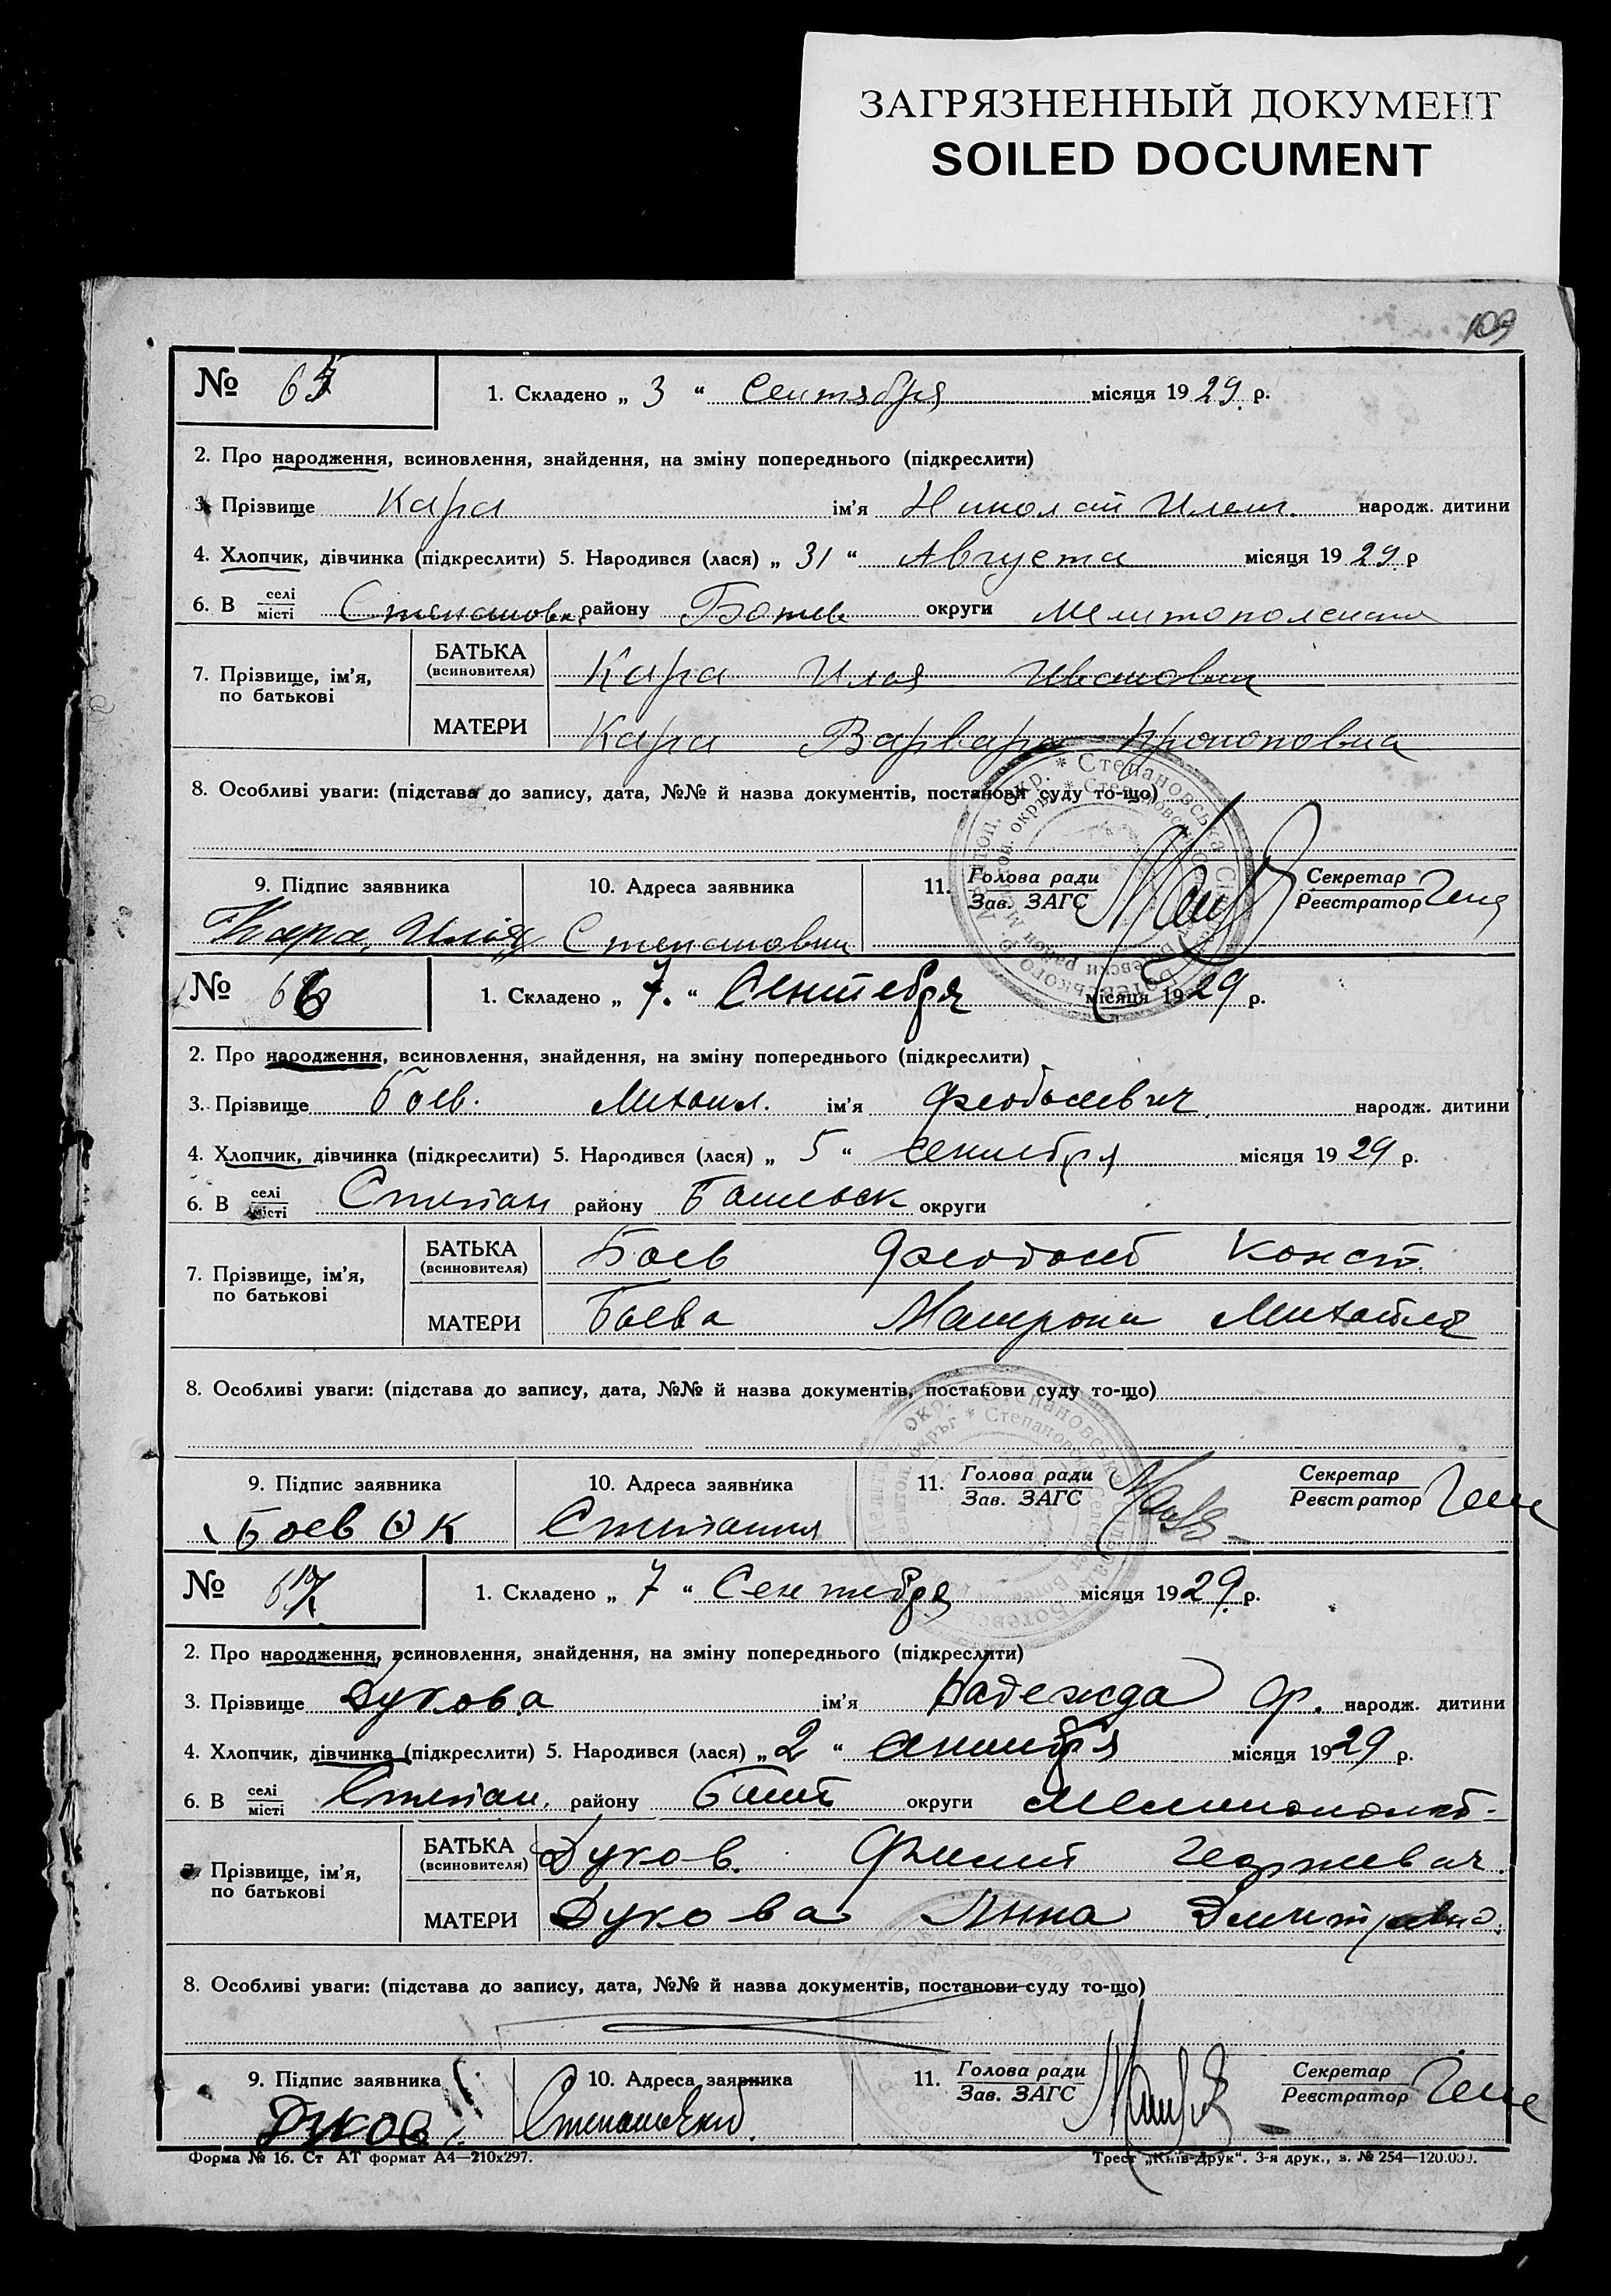 ЗАГРЯЗНЕННЫЙ ДОКУМЕНТ
SOILED DOCUMENT
109
№ 65 1. Складено „ 3 “ Сентября місяця 1929. р.
2. Про народження, всиновлення, знайдення, на зміну попереднього (підкреслити)
3. Прізвище Кара ім'я Николай Ильич. народж. дитини
4. Хлопчик, дівчинка (підкреслити) 5. Народився (лася) „ 31 “ Августа місяця 1929. р
6. В селі/місті Степановк. району Ботев округи
7. Прізвище, ім'я, по батькові
БАТЬКА (всиновителя) Кара Илья Иванович
МАТЕРИ Кара Варвара
8. Особливі уваги: (підстава до запису, дата, №№ й назва документів, постанови суду то-що)
9. Підпис заявника 10. Адреса заявника 11. Голова ради Зав. ЗАГС Секретар Реєстратор
Кара, Илия Степановки
№ 66 1. Складено „ 7. “ Сентебря місяця 1929 р.
2. Про народження, всиновлення, знайдення, на зміну попереднього (підкреслити)
3. Прізвище Боев. Михаил. ім'я народж. дитини
4. Хлопчик, дівчинка (підкреслити) 5. Народився (лася) „ 5 “ сентебря місяця 1929 р.
6. В селі/місті Степан району округи
7. Прізвище, ім'я, по батькові
БАТЬКА (всиновителя) Боев Феодосий Конст.
МАТЕРИ Боева Матрона
8. Особливі уваги: (підстава до запису, дата, №№ й назва документів, постанови суду то-що)
9. Підпис заявника 10. Адреса заявника 11. Голова ради Зав. ЗАГС Секретар Реєстратор
Боев Ѳ К
№ 67 1. Складено „ 7 “ Сентебря місяця 1929. р.
2. Про народження, всиновлення, знайдення, на зміну попереднього (підкреслити)
3. Прізвище Дукова ім'я Надежда Ф. народж. дитини
4. Хлопчик, дівчинка (підкреслити) 5. Народився (лася) „ 2 “ місяця 1929 р.
6. В селі/місті Степан. району округи
7. Прізвище, ім'я, по батькові
БАТЬКА (всиновителя) Дуков. Филип
МАТЕРИ Дукова Анна
8. Особливі уваги: (підстава до запису, дата, №№ й назва документів, постанови суду то-що)
9. Підпис заявника 10. Адреса заявника 11. Голова ради Зав. ЗАГС Секретар Реєстратор
Дуков
Форма № 16. Ст АТ формат А4—210x297. Трест „Київ-Друк“. 3-я друк., з. № 254—120.000.